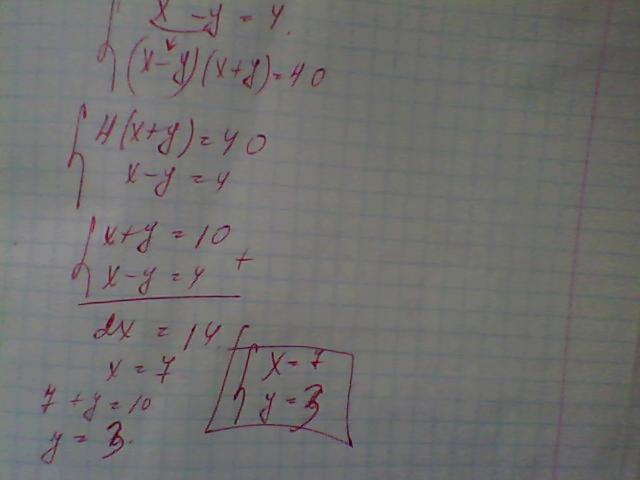 x - y = 4.
(x - y)(x + y) = 40
4(x + y) = 40
x - y = 4
x + y = 10
x - y = 4 +
2x = 14
x = 7
7 + y = 10
y = 3.
x = 7
y = 3